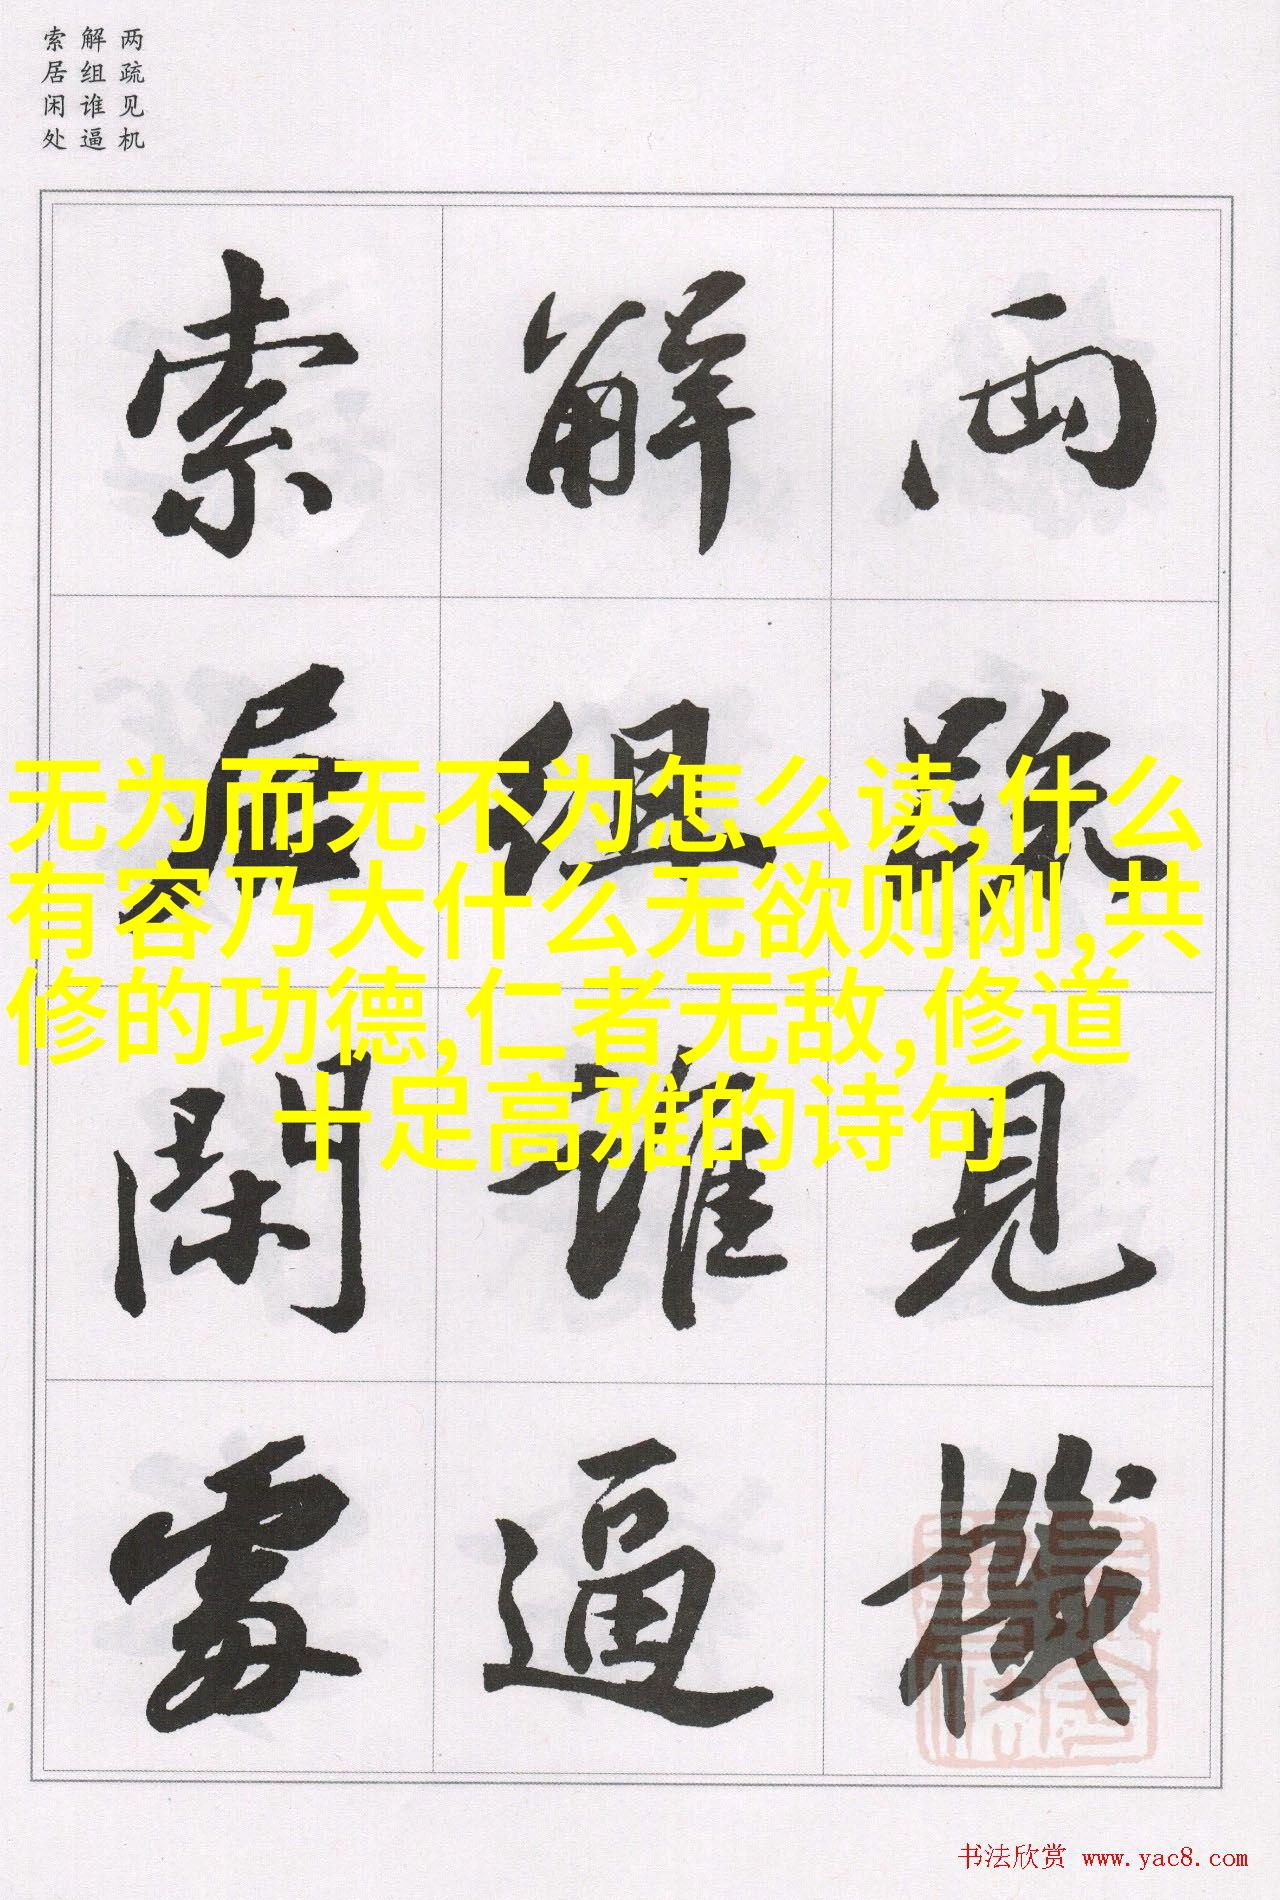 两疏见机
解组谁逼
索居闲处
兩疏見機
解組誰逼
索居閑處
无为而无不为怎么读,什么
有容乃大什么无欲则刚,共
修的功德,仁者无敌,修道
十足高雅的诗句
书法欣赏 www.yac8.com